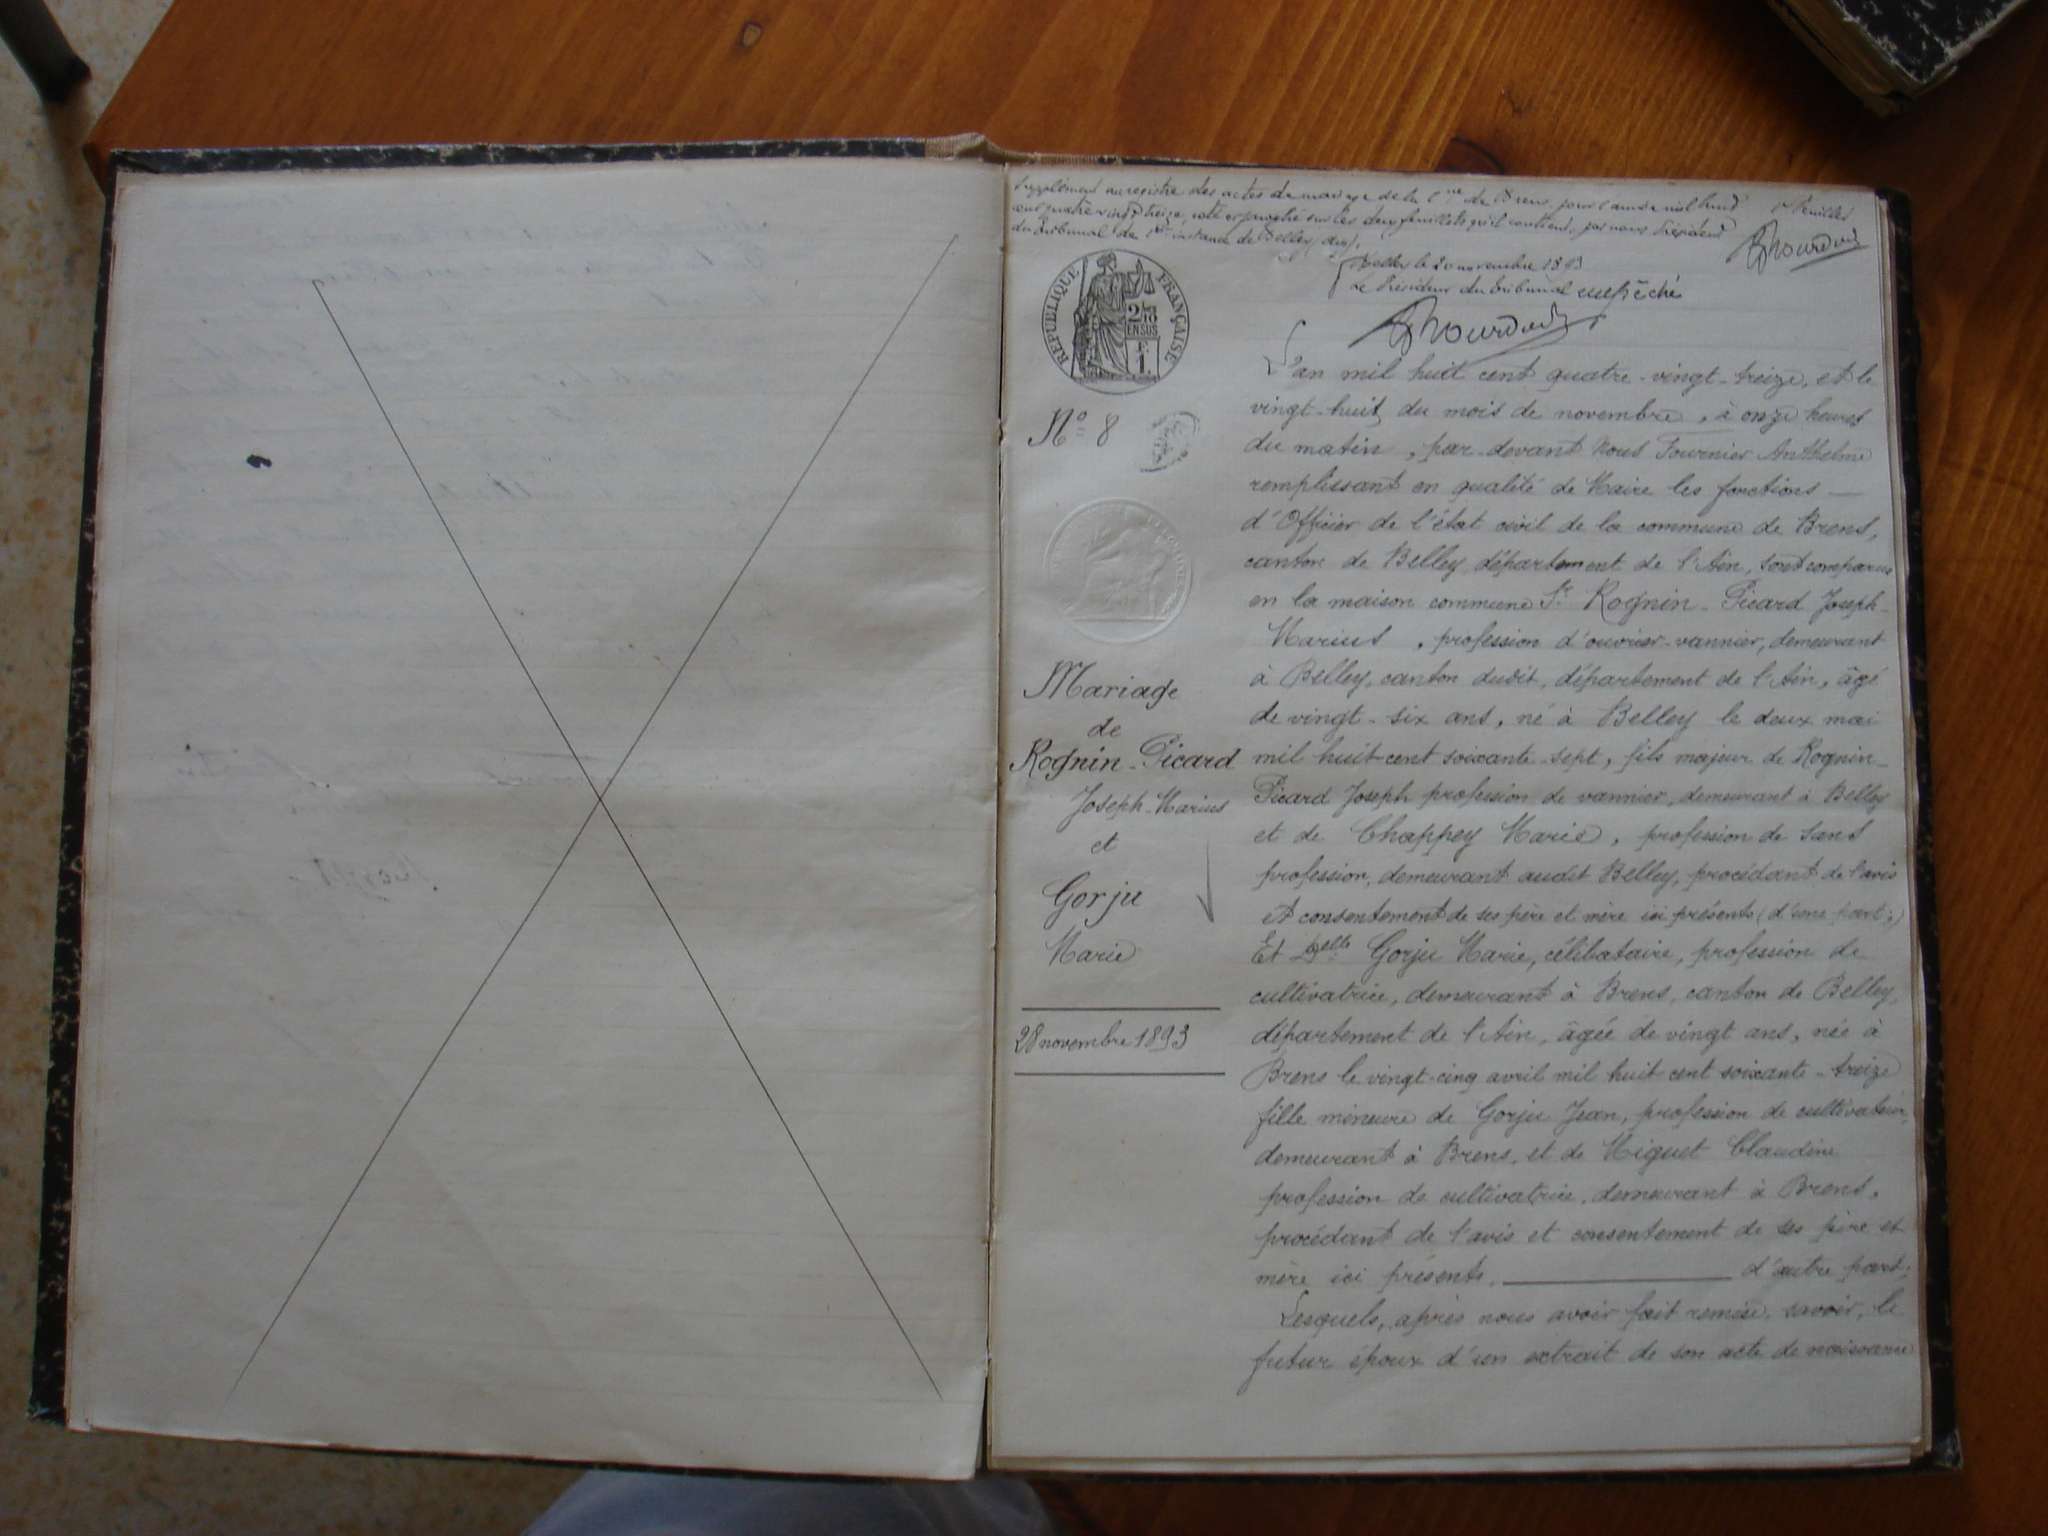 Supplément au registre des actes de mariage de la Cne de Brens, pour l'année mil huit
cent quatre vingt treize, coté et paraphé sur les deux feuillets qu'il contient, par nous Président
du tribunal de 1ère instance de Belley (Ain).
1er feuillet
Belley le 20 novembre 1893
Le Président du tribunal empêché
REPUBLIQUE FRANÇAISE
2/10 EN SUS
1.
N° 8
Mariage
de
Rognin-Picard
Joseph-Marius
et
Gorju
Marie
28 novembre 1893
L'an mil huit cent quatre-vingt-treize, et le
vingt-huit du mois de novembre, à onze heures
du matin, par-devant Nous Fournier Anthelme
remplissant en qualité de Maire les fonctions —
d'Officier de l'état civil de la commune de Brens,
canton de Belley, département de l'Ain, sont comparus
en la maison commune Sr Rognin-Picard Joseph-
Marius, profession d'ouvrier-vannier, demeurant
à Belley, canton dudit, département de l'Ain, âgé
de vingt-six ans, né à Belley le deux mai
mil huit cent soixante-sept, fils majeur de Rognin-
Picard Joseph profession de vannier, demeurant à Belley
et de Chappey Marie, profession de sans
profession, demeurant audit Belley, procédant de l'avis
et consentement de ses père et mère ici présents (d'une part;)
Et Delle Gorju Marie, célibataire, profession de
cultivatrice, demeurant à Brens, canton de Belley,
département de l'Ain, âgée de vingt ans, née à
Brens le vingt-cinq avril mil huit cent soixante-treize
fille mineure de Gorju Jean, profession de cultivateur,
demeurant à Brens, et de Miguet Claudine
profession de cultivatrice, demeurant à Brens,
procédant de l'avis et consentement de ses père et
mère ici présents. — d'autre part;
Lesquels, après nous avoir fait remise, savoir, le
futur époux d'un extrait de son acte de naissance